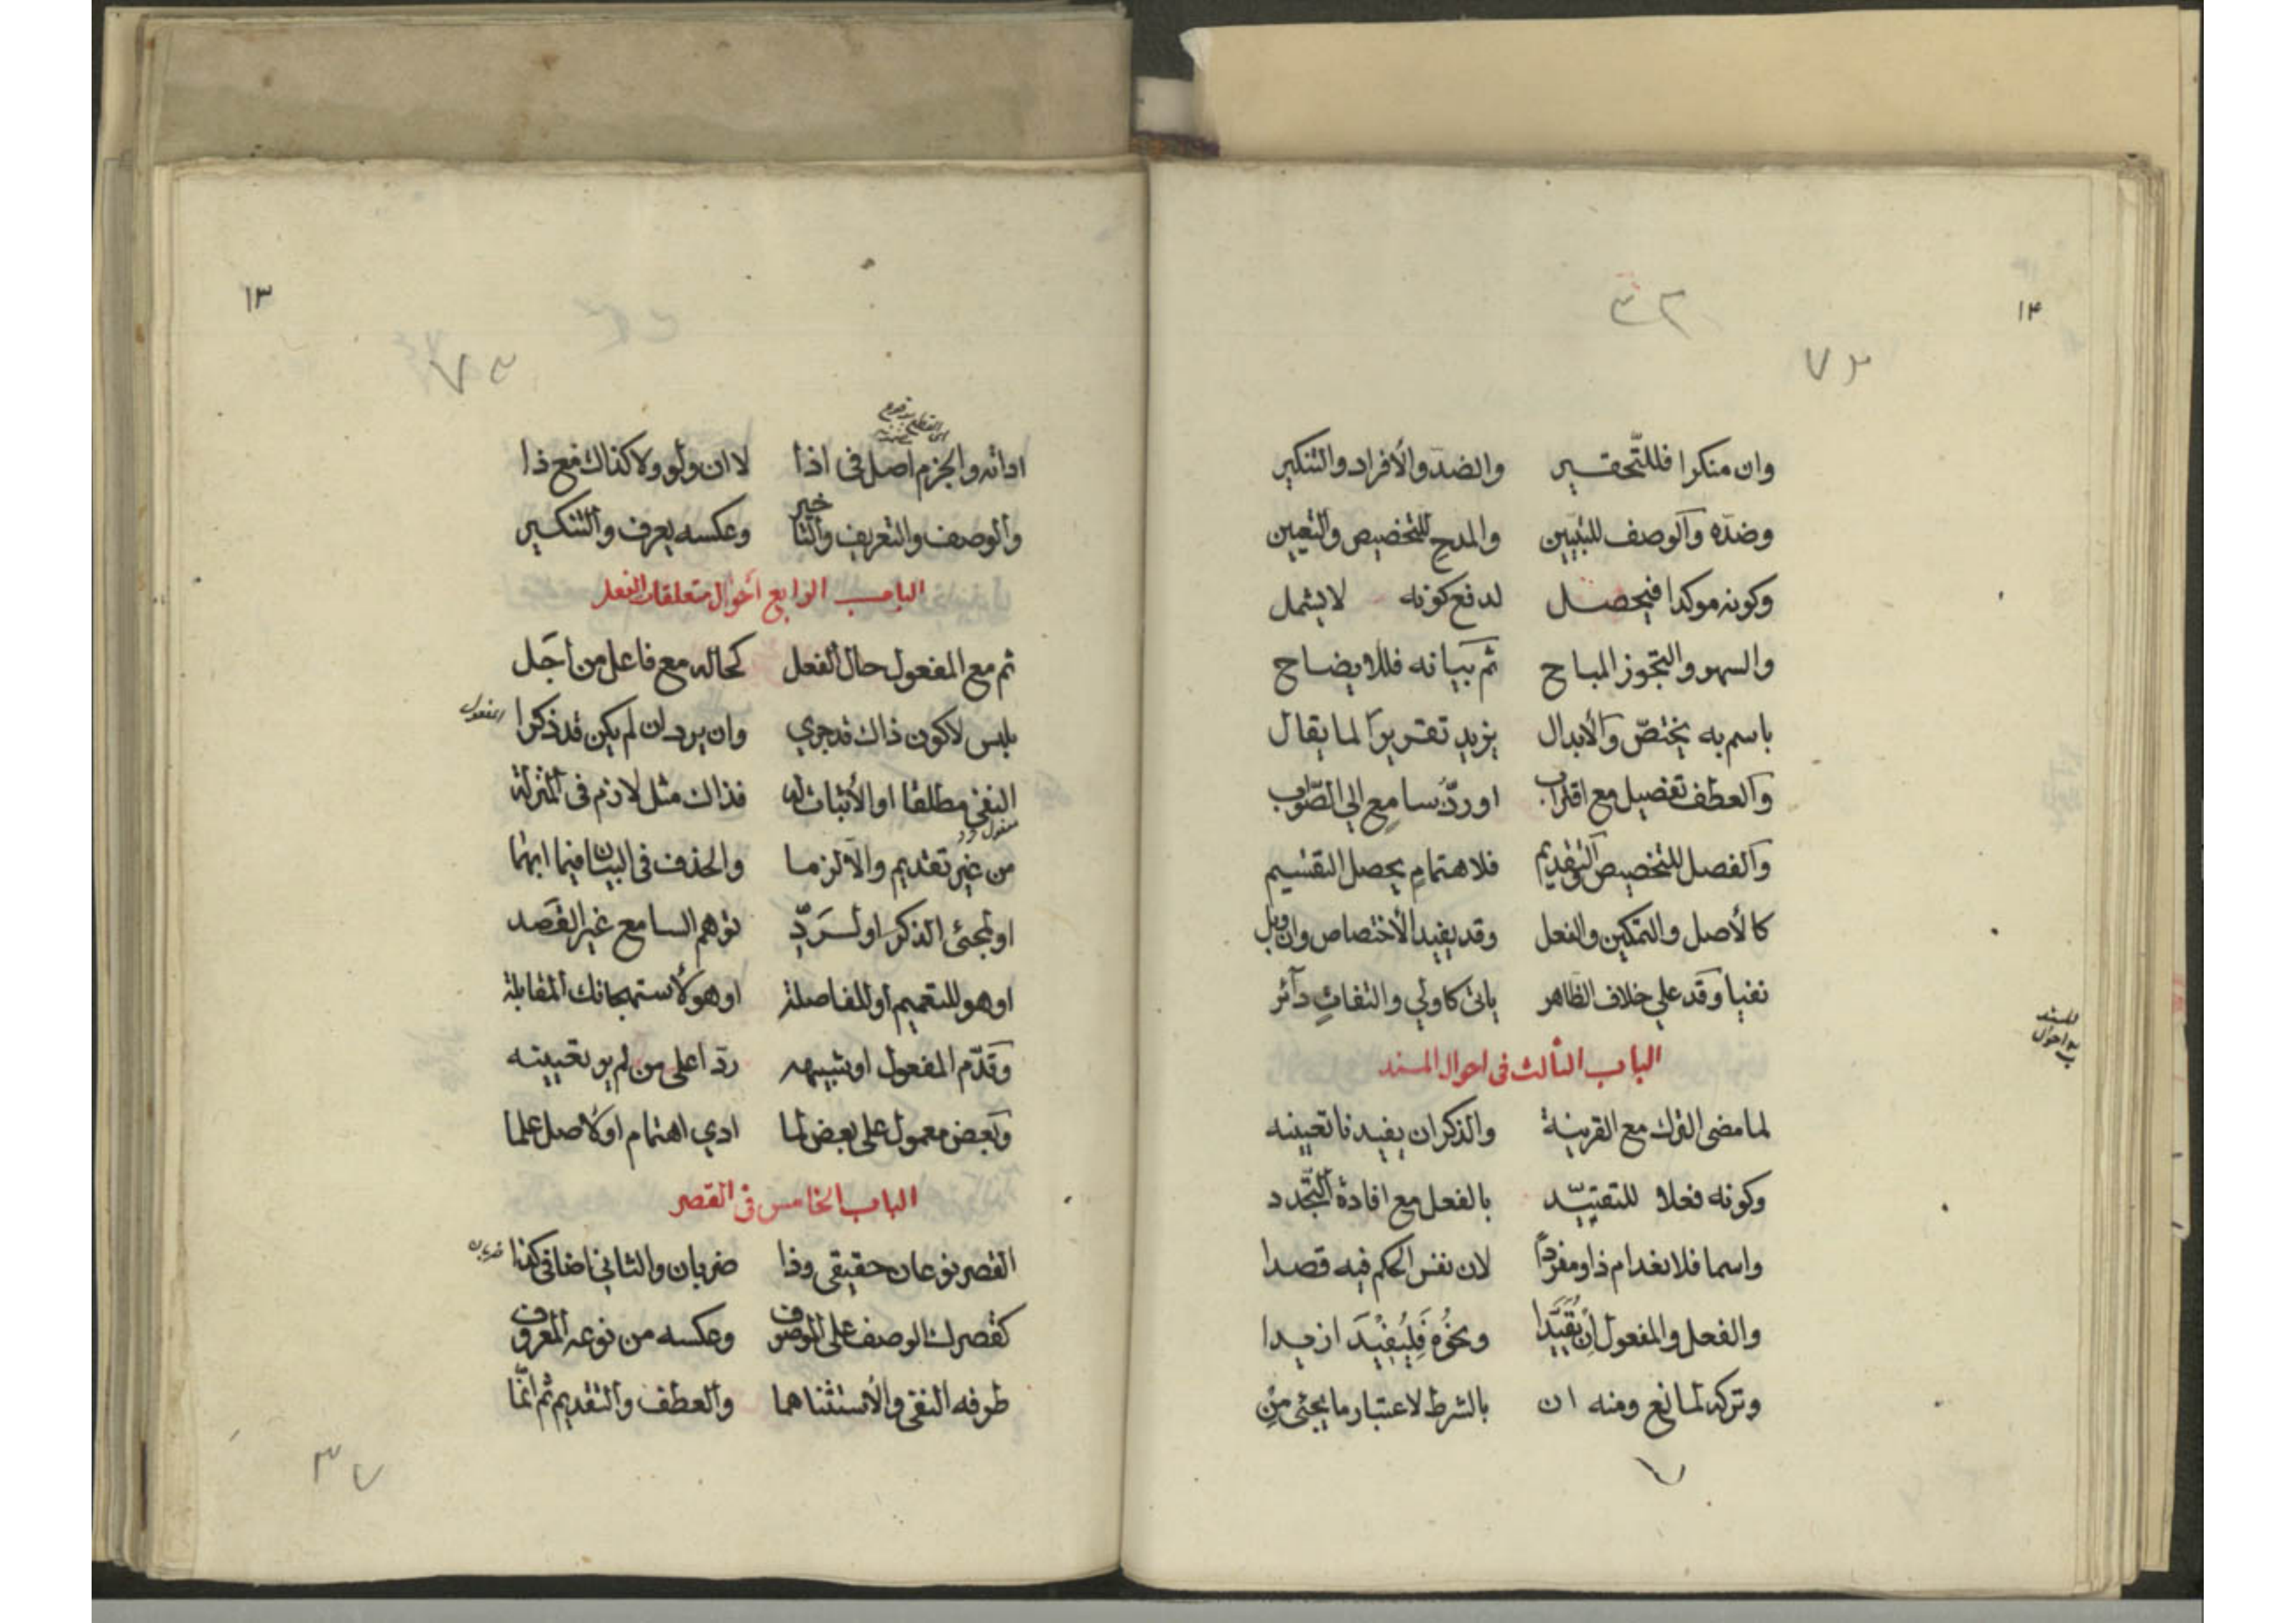 ١٢
٣٢
٧٢
وان منكرا فللتّحقير والضدّ والأفراد والتنكير
وضدّه والوصف للتبيين والمدح للتخصيص والتعيين
وكونه موكدا فيحصل لدفع كونه لايشمل
والسهو والتجوز المباح ثمّ بيانه فللايضاح
باسم به يختصّ والأبدال يزيد تقريرا لما يقال
والعطف تفصيل مع اقتراب اوردّ سامع الي الصّواب
والفصل للتخصيص التقديم فلاهتمام يحصل التقسيم
كالأصل والتمكين والفعل وقد يفيد الأختصاص وان ولي
نفيا وقد علي خلاف الظاهر ياتي كاولي والتفات دآئر
للمسند
احوال
الباب الثالث في احوال المسند
لما مضى الترك مع القرينة والذكر ان يفيدنا تعيينه
وكونه فعلا للتقيّد بالفعل مع افادة التجّدد
واسما فلانعدام ذا ومفردًا لان نفس الحكم فيه قصدا
والفعل والمفعول ان تُقَيّدا ونحوُه فليُفيدَ ازيدا
وتركه لمانع ومنه ان بالشرط لاعتبار ما يجئى من
٧
١٣
٧٣
اداته والجزم اصل في اذا لا ان ولو ولا كذاك مع ذا
والوصف والتعريف والتاخير وعكسه يعرف والتنكير
الباب الرابع أحوال متعلقات الفعل
ثم مع المفعول حال الفعل كحاله مع فاعل من أجل
تلبس لاكون ذاك قد جري وان يرد ان لم يكن قد ذكرا
المفعول
النفي مطلقا او الأثبات له فذاك مثل لازم في المنزلة
من غير تقديم والّا لزما والحذف في البيان فيما ابهما
او لمجئى الذكر او لردّ توهم السامع غير القصد
او هو للتعميم أو للفاصلة او هو لأستهجانك المقابلة
وقدّم المفعول او شبيهه ردّا على من لم يو تعيينه
وبعض معمول على بعض لما ادي اهتمام او لأصل علما
الباب الخامس في القصر
القصر نوعان حقيقي وذا ضربان والثاني اضافي كذا
ضربان
كقصرك الوصف على الموصوف وعكسه من نوعه المعروف
طرفه النفي والأستثنا هما والعطف والتقديم ثم انّما
٧٣